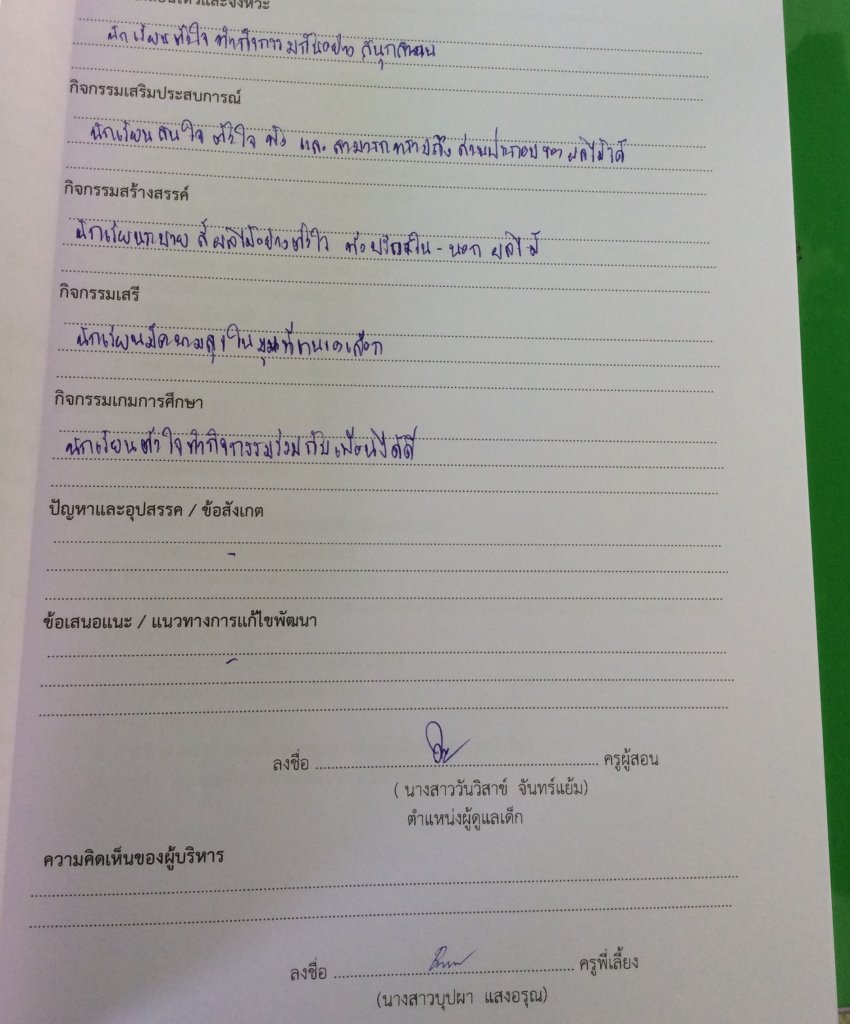 เคลื่อนไหวและจังหวะ
นักเรียนตั้งใจ ทำกิจกรรมกันอย่าง สนุกสนาน
กิจกรรมเสริมประสบการณ์
นักเรียนสนใจ ตั้งใจ ฟัง และ สามารถทราบถึง ส่วนประกอบของผลไม้ได้
กิจกรรมสร้างสรรค์
นักเรียนระบาย สีผลไม้อย่างตั้งใจ ใน - นอก ผลไม้
กิจกรรมเสรี
นักเรียนมีความสุขในมุมที่ตนเองเลือก
กิจกรรมเกมการศึกษา
นักเรียนตั้งใจทำกิจกรรมร่วมกับเพื่อนได้ดี
ปัญหาและอุปสรรค / ข้อสังเกต
-
ข้อเสนอแนะ / แนวทางการแก้ไขพัฒนา
-
ลงชื่อ ........................ ครูผู้สอน
( นางสาววันวิสาข์ จันทร์แย้ม)
ตำแหน่งผู้ดูแลเด็ก
ความคิดเห็นของผู้บริหาร
ลงชื่อ ........................ ครูพี่เลี้ยง
(นางสาวบุปผา แสงอรุณ)